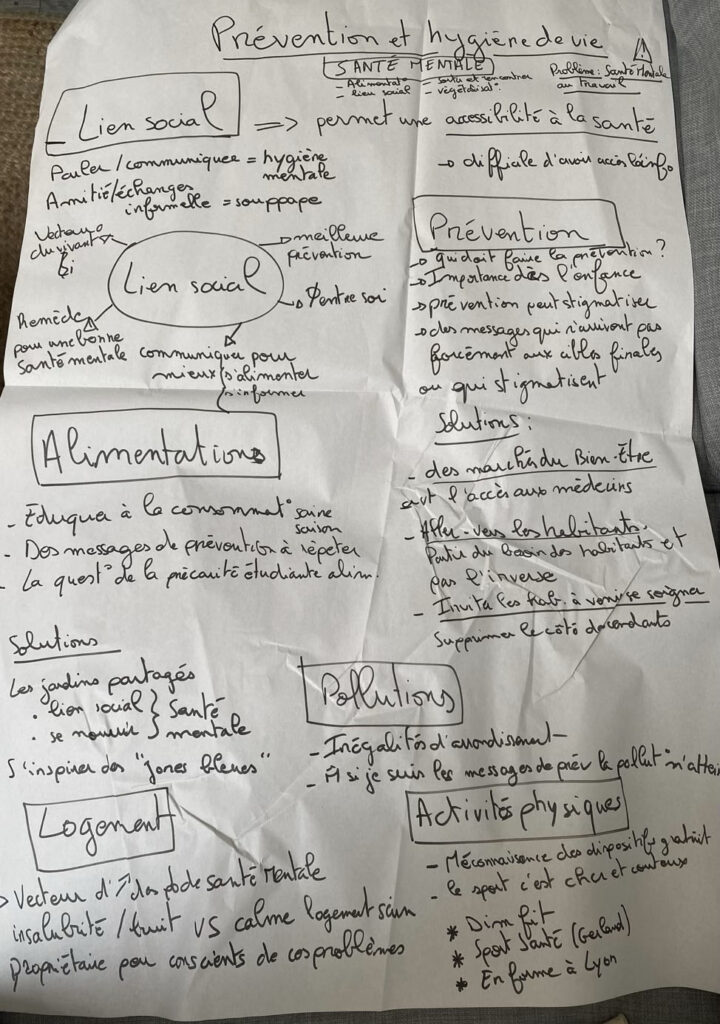 Prévention et hygiène de vie
SANTÉ MENTALE
- Alimentat°
- lien social
- sortir et rencontrer
- végétalisat°
Problème : Santé Mentale
au travail
Lien social
=> permet une accessibilité à la santé
Parler / communiquer = hygiène
mentale
-> difficile d'avoir accès à l'info
Amitié/échanges
informelle = souppape
Lien social
Vecteur
du vivant
bi
meilleure
prévention
Ø entre soi
Remède
pour une bonne
Santé mentale
communiquer pour
mieux s'alimenter
s'informer
Prévention
-> qui doit faire la prévention ?
-> Importance dès l'enfance
-> prévention peut stigmatiser
-> des messages qui n'arrivent pas
forcément aux cibles finales
ou qui stigmatisent
Solutions :
- des marchés du Bien-Être
avt l'accès aux médecins
- Aller vers les habitants.
Partir du besoin des habitants et
pas l'inverse
- Inviter les hab. à venir se soigner
Supprimer le côté descendants
Alimentations
- Éduquer à la consommat° saine
saison
- Des messages de prévention à répéter
- La quest° de la précarité étudiante alim.
Solutions
Les jardins partagés
• lien social } Santé
• se nourrir } mentale
S'inspirer des "zones bleues"
Pollutions
- Inégalités d'arrondissement
- si je suis les messages de prév la pollut° n'attei
Logement
> Vecteur d'↗ des pb de santé Mentale
insalubrité / bruit VS calme logement sain
propriétaire peu conscients de ces problèmes
Activités physiques
- Méconnaissance des dispositifs gratuit
- le sport c'est cher et couteux
* Dim fit
* Sport Santé (Gerland)
* En forme à Lyon